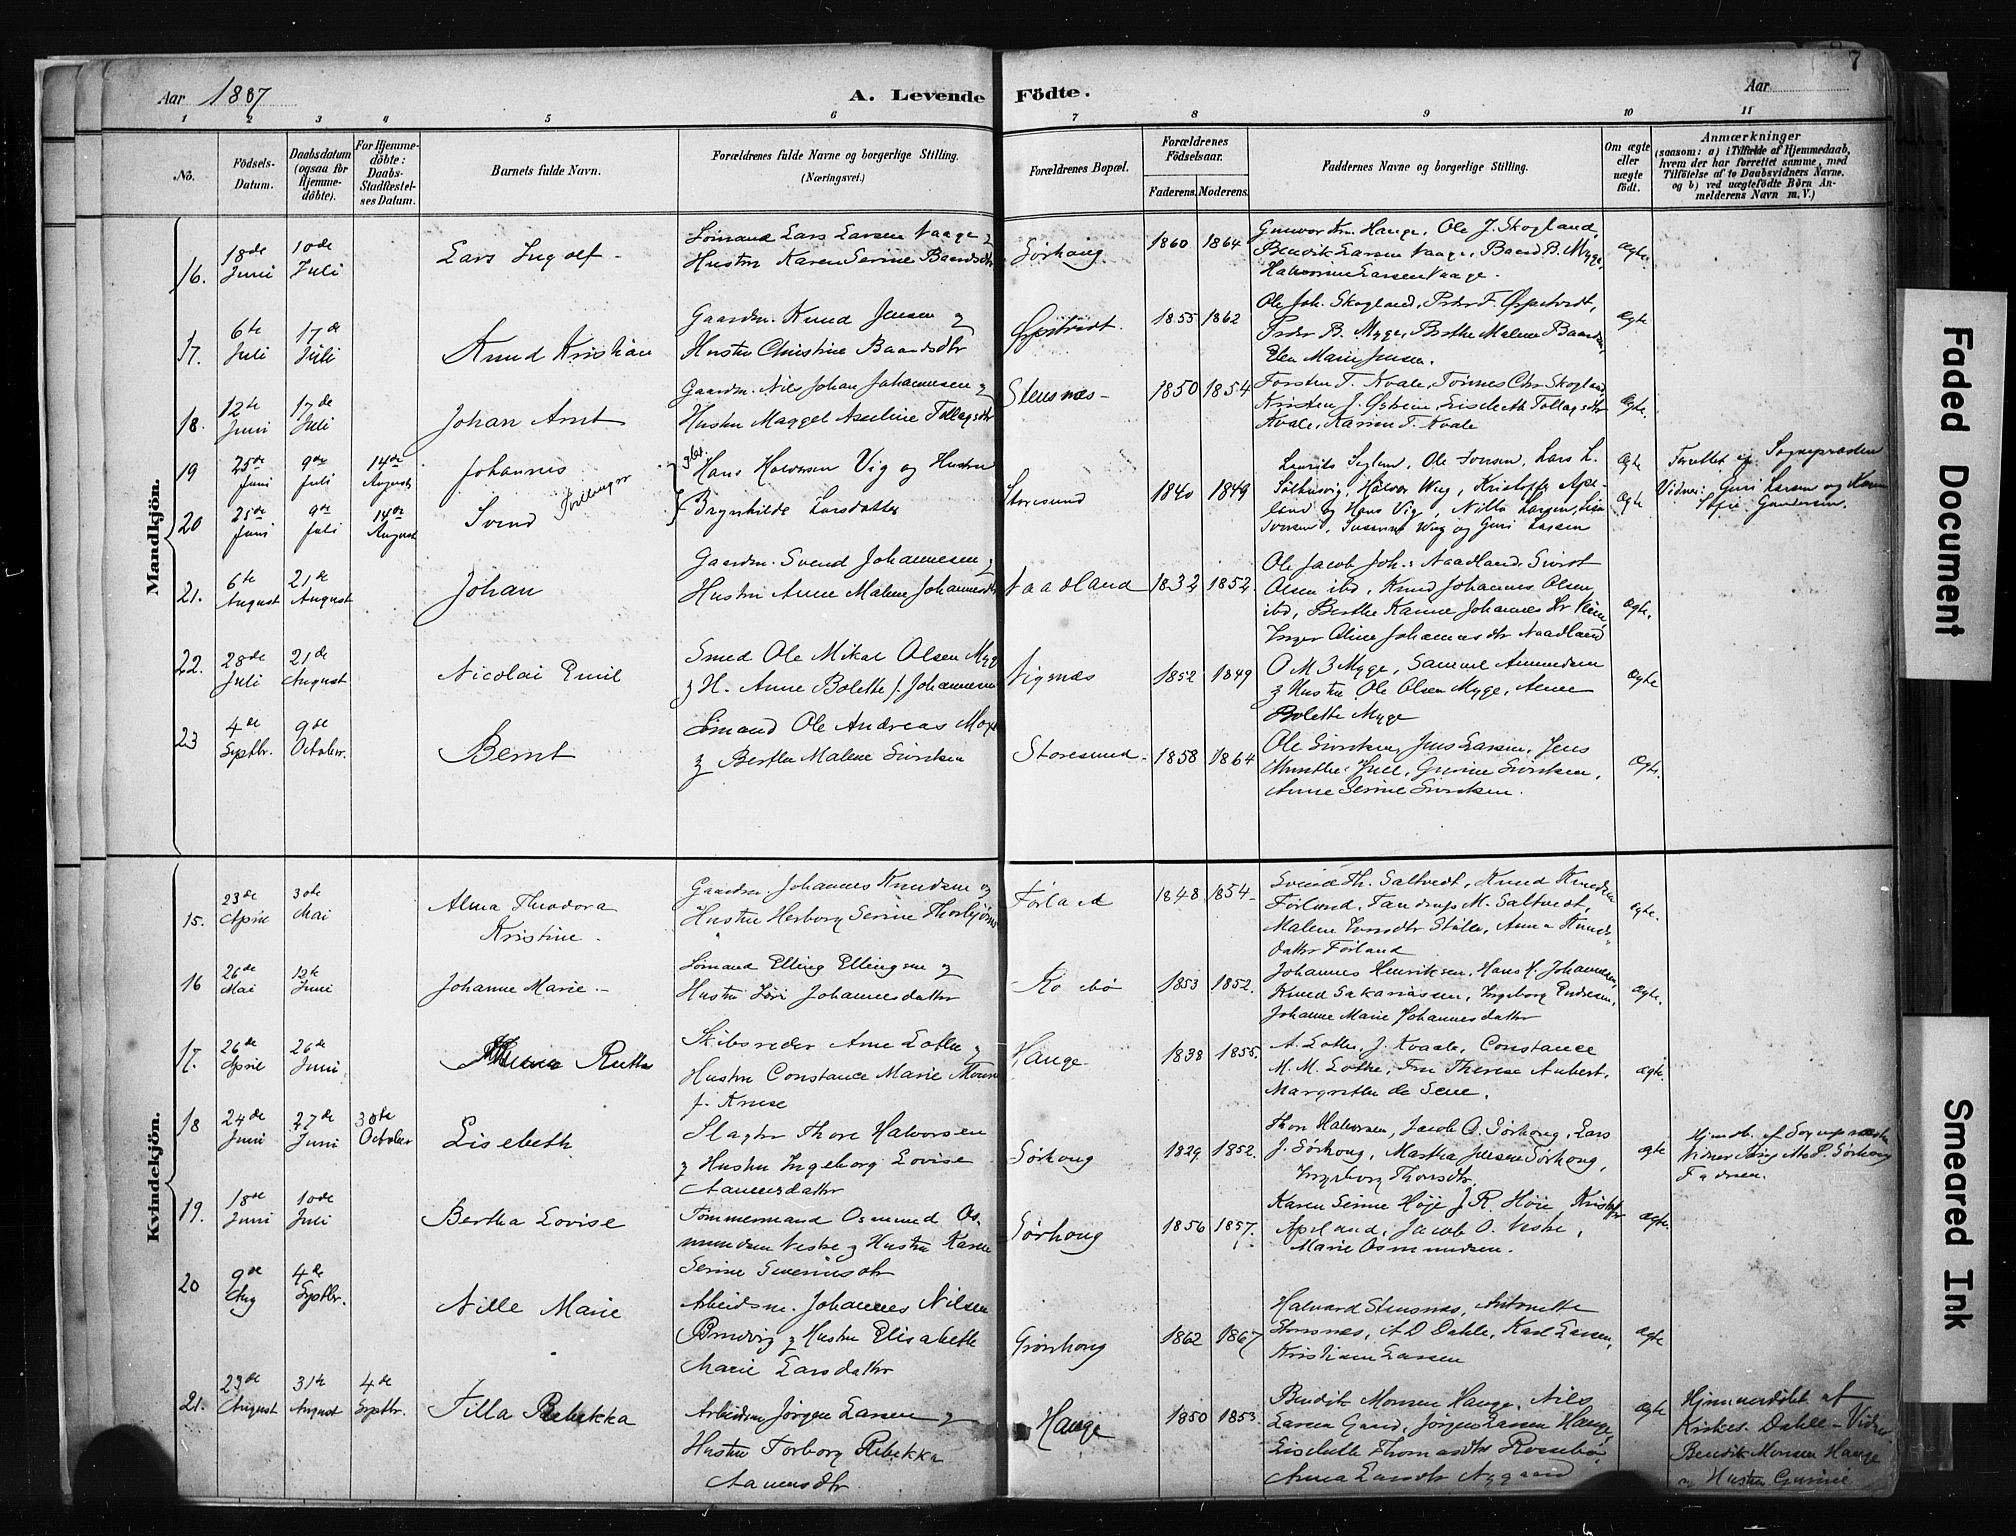 7
Aar 1887 A. Levende Födte. Aar
1 2 3 4 5 6 7 8 9 10 11
No.
Födsels-Datum.
Daabsdatum (ogsaa for Hjemme-döbte).
For Hjemme-döbte: Daabs-Stadfæstel-ses Datum.
Barnets fulde Navn.
Forældrenes fulde Navne og borgerlige Stilling.
(Næringsvei.)
Forældrenes Bopæl.
Forældrenes Födselsaar.
Faderens. Moderens.
Faddernes Navne og borgerlige Stilling.
Om ægte eller uægte födt.
Anmærkninger
(saasom: a) i Tilfælde af Hjemmedaab, hvem der har forrettet samme, med Tilföielse af to Daabsvidners Navne, og b) ved uægtefödte Børn An-melderens Navn m. V.)
Mandkjön.
16. 18de Juni 10de Juli Lars Ingolf - Sømand Lars Larsen Vaage
Hustru Karen Serine Baardsdtr Sørhoug 1860 1864 Hauge, Ole J. Skogland,
Bendik Larsen Vaage, Baard B. Myge,
Larsen Vaage. Ægte.
17. 6te Juli 17de Juli Knud Kristian Gaardm. Knud Jensen og
Hustru Christine Baardsdtr 1855 1862 Ole Joh. Skogland, Peder F.
Peder B. Myge, Berthe Malene
Marie Jensen. Ægte
18. 12te Juni 17de Juli Johan Arnt Gaardm. Nils Johan Johannesen
Hustru Magget Aseline Tollagsdtr Stensnæs - 1850 1854 Torsten T. Kvale, Tønnes Chr Skogland,
Kristen J. Østein, Lisebeth Tollagsdtr
Kvale, Karen T. Kvale Ægte.
19 25de Juni 9de Juli 14de August Johannes
20 25de Juni 9de Juli 14de August Svend
Tvillinger
Hans Halvorsen Vig og Hustru
Brynhilde Larsdatter Storesund 1840 1849 Laurits, Ole Jonsen, Lars L.
Halvor Wig,
og Hans Vig, Nille Larsen,
Susanne Wig og Guri Larsen Ægte Ægte
Forrettet af Sognepresten
Vidner: Guri Larsen og
Gundersen.
21. 6te August 21de August Johan Gaardm. Svend Johannesen
Hustru Anne Malene Johannesdtr Naadland 1832 1852. Ole Jacob Joh. Naadland Sivert
Olsen ibd, Knud Johannes Olsen
ibd, Berthe Karine Johannes
Inger Oline Johannesdtr Naadland Ægte.
22. 28de Juli 21de August Nicolai Emil Smed Ole Mikal Olsen Myge
H. Anne Bolette f. Johannesen Vigsnæs 1852 1849 O M Myge, Samuel Amundsen
Hustru Ole Olsen Myge, Anne
Bolette Myge Ægte
23 4de Septbr. 9de October. Bernt Sømand Ole Andreas
Berthe Malene Sivertsen Storesund - 1858 1864 Ole Sivertsen, Jens Larsen, Jens
Munthe Juel, Gurine Sivertsen,
Anne Serine Sivertsen. Ægte.
Kvindekjön.
15. 23de April 30te Mai Alma Theodora
Kristine. Gaardm. Johannes Knudsen og
Hustru Herborg Serine Førland 1848 1854 Svend Th. Saltvedt, Knud Knudsen
Førland, M. Saltvedt,
Malene, Anna Knuds-
datter Førland Ægte.
16 26de Mai 12te Juni Johanne Marie - Sømand Elling Ellingsen og
Hustru Siri Johannesdatter 1853 1852. Johannes Henriksen, Hans H. Johannesen,
Knud Sakariassen, Ingeborg Endresen,
Johanne Marie Johannesdatter Ægte.
17. 26de April 26de Juni Ruth Skibsreder Arne Lothe
Hustru Constance Marie
f. Kruse Hauge 1838 1855. A. Lothe, J. Kvaale, Constance
M. M. Lothe, Fru Therese Aubert,
Margrethe de Seue. Ægte.
18 24de Juni 27de Juni 30te October Lisebeth Slagter Thore Halvorsen
Hustru Ingeborg Lovise
Aanensdatter Sørhoug 1829 1852. Thore Halvorsen, Jacob O. Sørhoug, Lars
J. Sørhoug, Martha Jensen Sørhoug,
Ingeborg Thorsdtr. Ægte Hjemdb. af Sognepresten
Vidner Sørhoug
Fadren.
19. 18de Juni 10de Juli Bertha Lovise Tømmermand Osmund Os-
mundsen Neske Hustru Karen
Serine Sørhoug 1856 1857. Karen Serine Høje J. R. Høie, Kristoffer
Apeland, Jacob O. Neske,
Marie Osmundsen. Ægte.
20 9de Aug 4de Septbr. Nille Marie Arbeidsm. Johannes Nilsen
Hustru Elisabeth
Marie Larsdatter Sørhoug 1862 1867 Halvard Stensnæs, Antonette
Stensnæs, A D Dahle, Karl Larsen,
Kristiane Larsen Ægte
21. 23de August 31te August 4de Septbr. Tilla Rebekka Arbeidsm Jørgen Larsen
Hustru Torborg Rebekka
Aanensdtr Hauge 1850 1853. Bendik Monsen Hauge, Nils
Larsen Gaard, Jørgen Larsen Hauge,
Lisebette Thomasdtr Rossebø
Anna Larsdtr Nygaard Ægte Hjemmedøbt af
Kirkes. Dahle - Vidner
Bendik Monsen Hauge
og Hustru Gurine
Faded Document
Smeared Ink